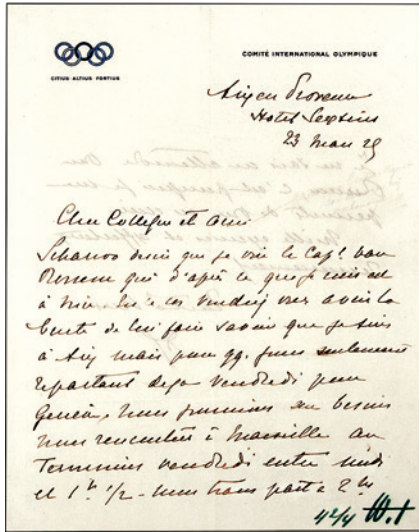 CITIUS · ALTIUS · FORTIUS
COMITÉ INTERNATIONAL OLYMPIQUE
Aix en Provence
Hotel Sextius
23 Mars 25
Cher Collègue et ami
Scharroo desire que je voie le Capt. van
Rossem qui d'après ce que je
à Nice
de lui faire savoir que je suis
à Aix mais pour qq. jours seulement
repartant deja vendredi pour
Genève. Nous pourrions au besoin
nous rencontrer à Marseille au
Terminus vendredi entre midi
et 1h 1/2 - mon train part à 2 hs